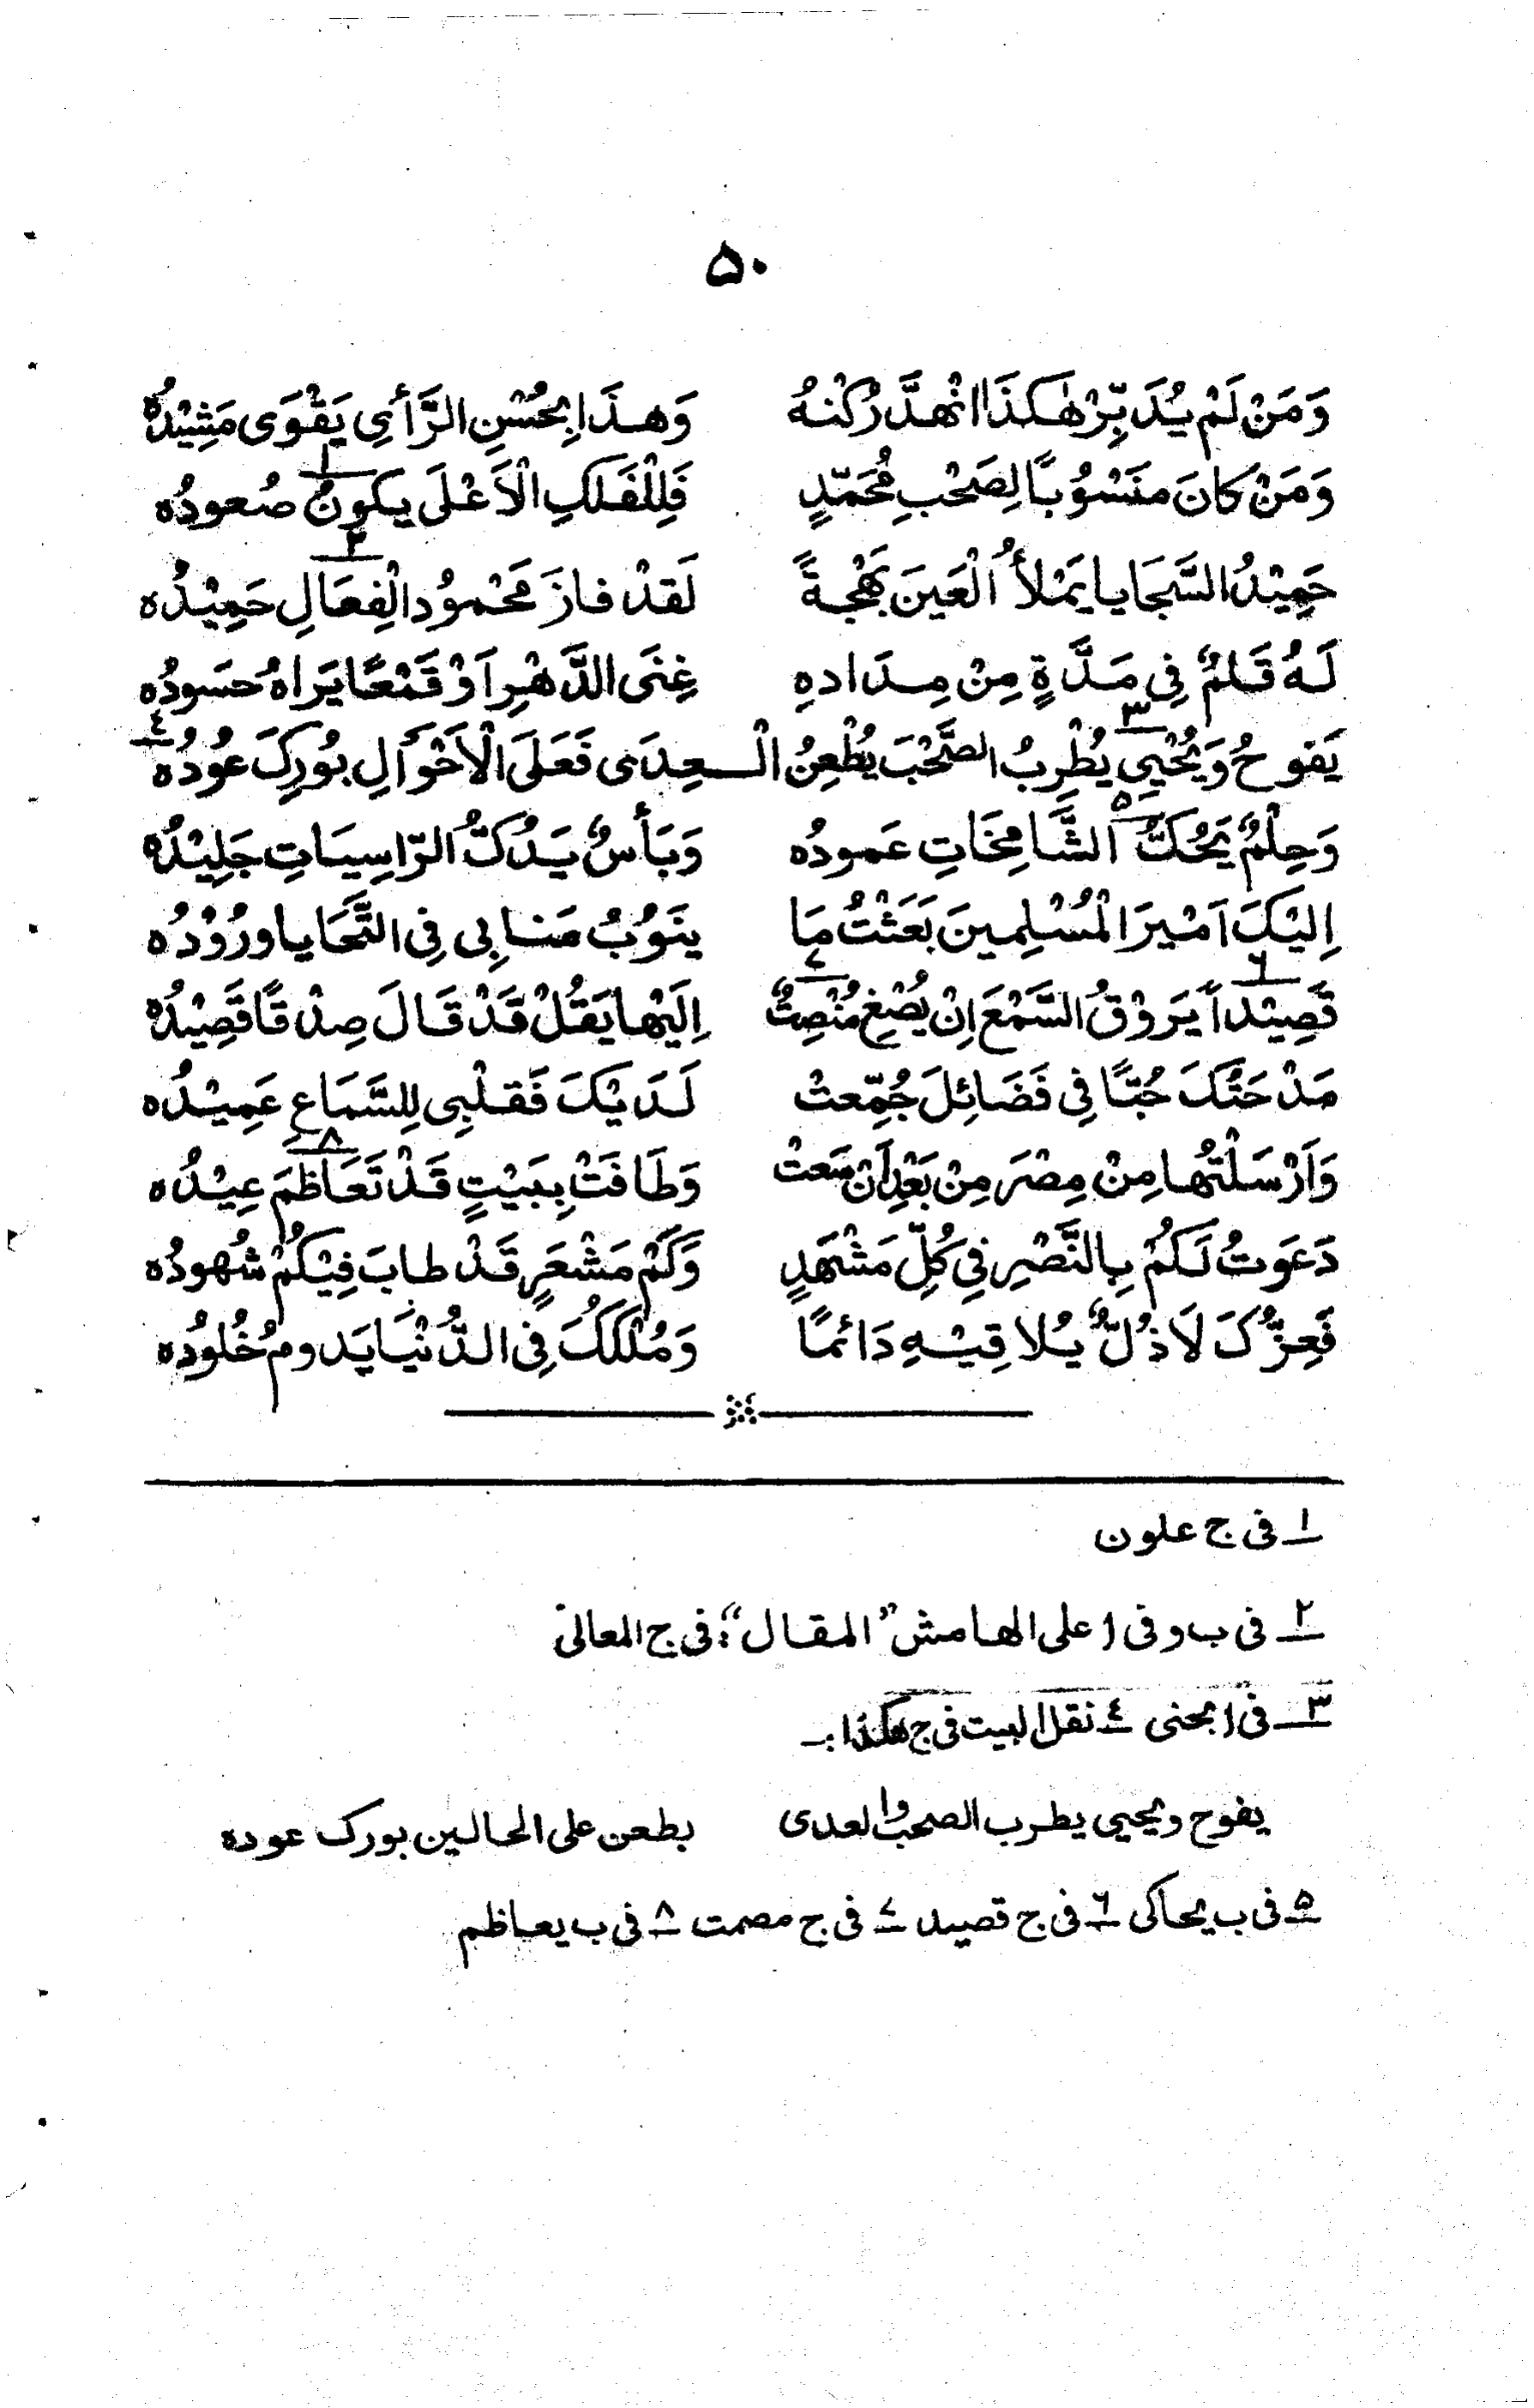 ٥٠
وَمَنْ لَمْ يُدَبِّرْ هٰكَذَا انْهَدَّ رُكْنُهُ وَهـذَا بِحُسْنِ الرَّأىِ يَقْوَى مَشِيْدُهُ
وَمَنْ كَانَ مَنْسُوْبًا لِصَحْبِ مُحَمَّدٍ فَلِلْفَلَكِ الْاَعْلَى يكونُ ١ صُعودُه
حَمِيْدُ السَّجَايا يَمْلأُ الْعَيَنَ بَهْجةً لَقدْ فازَ مَحْمُوْدُ الْفِعَالِ ٢ حَمِيْدُه
لَهُ قَلمٌ فِي مَدَّةٍ مِنْ مِدَادهِ غِنَى الدَّهْرِ اَوْ قَمْعًا يَرَاهُ حَسَودُه
يَفوحُ وَيُحْيِي ٣ يُطْرِبُ الصَّحْبَ يُطْعِنُ الْعِدَى فَعَلَى الْاَحْوَالِ بُورِكَ عُودُه ٤
وَحِلْمٌ يَحُكُّ ٥ الشَّامِخَاتِ عَمودُه وَبَأسٌ يَدُكُّ الرّاسِيَاتِ جَلِيْدُهُ
اِليْكَ اَمْيرَ الْمُسْلِمينَ بَعَثْتُ مَا يَنَوُبُ مَنابِى فِى التَّحَايا ورُوْدُه
قَصِيْداً ٦ يَرَوْقُ السَّمْعَ اِنْ يُصْغِ مُنْصِتٌ ٧ اِلَيْها يَقُلْ قَدْ قَالَ صِدْقًا قَصِيْدُهُ
مَدْحَتُكَ حُبًّا فِي فَضَائِلَ جُمِّعتْ لَدَيْكَ فَقلْبِى لِلسَّمَاعِ عَمِيْدُه
وَاَرْسَلْتُها مِنْ مِصْرَ مِنْ بَعْدِ اَنْ سَعتْ وَطَافَتْ بِبَيْتٍ قَدْ تَعَاظَمَ ٨ عِيْدُه
دَعَوتُ لَكُمْ بِالنَّصْرِ فِي كُلِّ مَشْهَدٍ وَكَمْ مَشْعَرٍ قَدْ طابَ فِيْكُمْ شُهودُه
فَعِزُّكَ لَا ذُلٌّ يُلاقِيْهِ دَائمًا وَمُلْكُكَ فِى الدُّنْيَا يَدومُ خُلُودُه
١ ـ فى ج علون
٢ ـ فى ب وفى ا على الهامش "المقال"؛ فى ج المعالى
٣ ـ فى ا يجنى ٤ ـ نقل البيت فى ج هكذا :ـ
يفوح ويحيى يطرب الصحب والعدى بطعن على الحالين بورك عوده
٥ ـ فى ب يحاكى ٦ ـ فى ج قصيد ٧ ـ فى ج مصمت ٨ ـ فى ب يعاظم